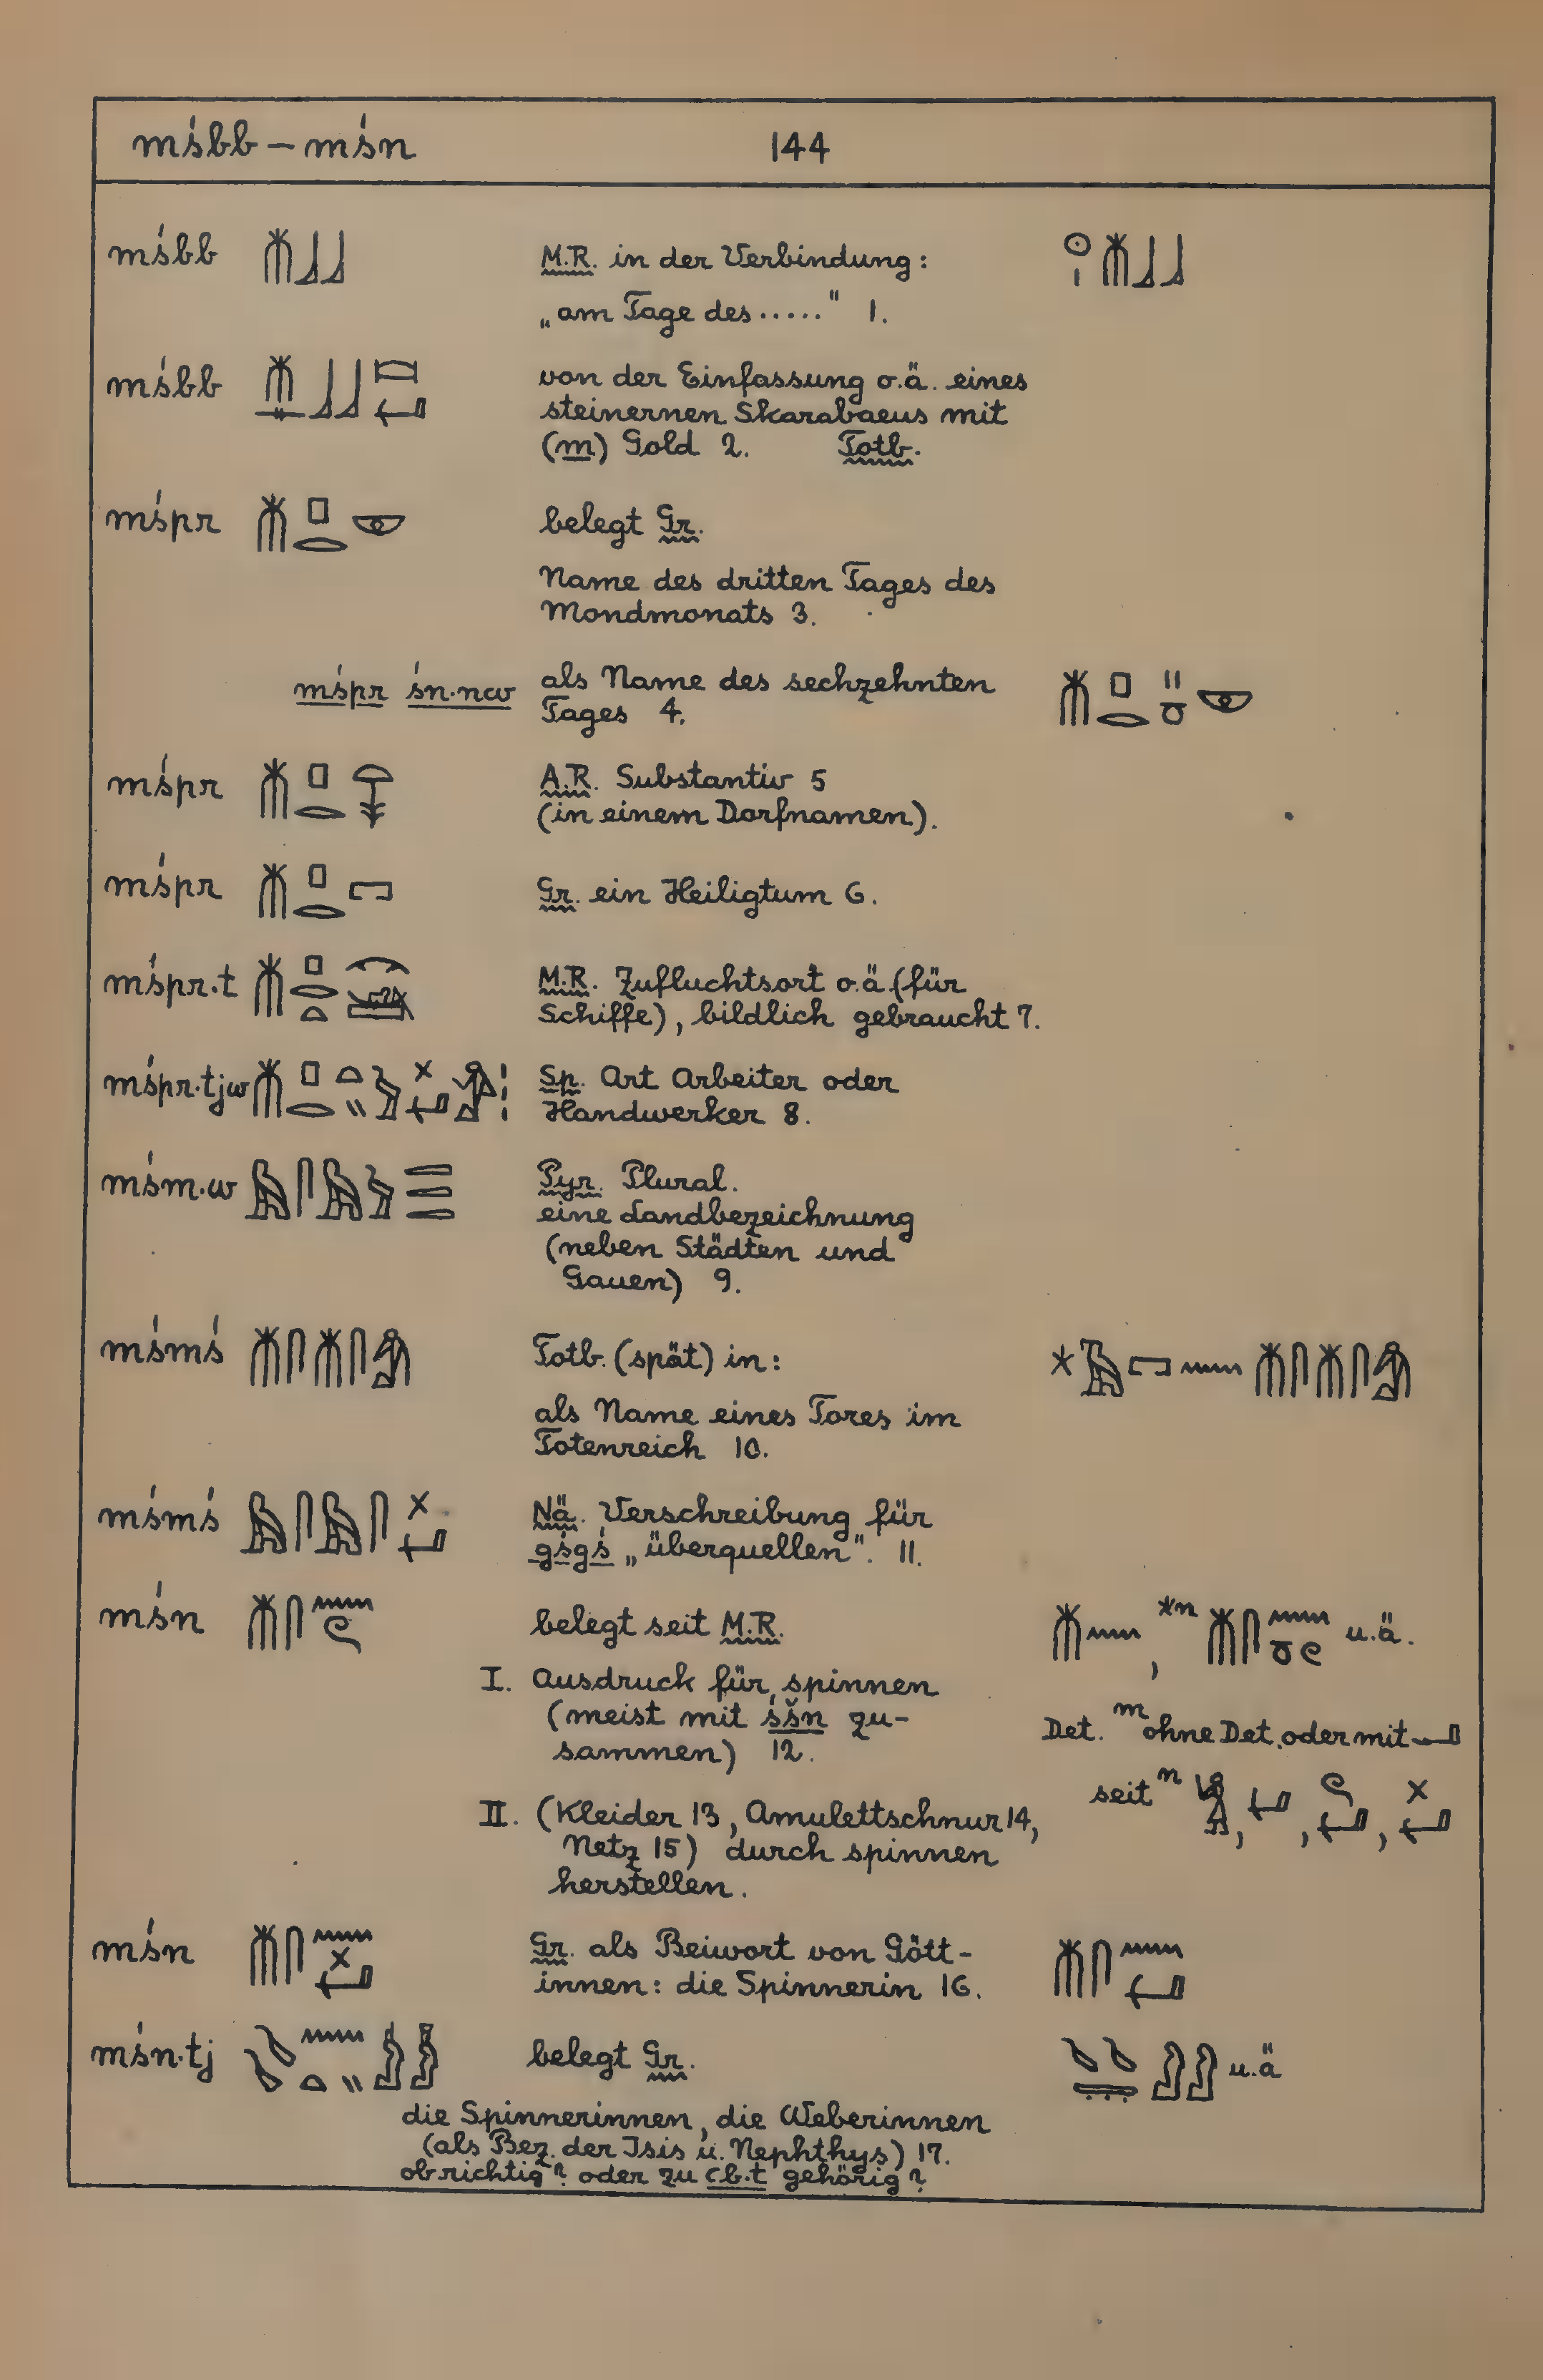 mśbb – mśn 144
mśbb M.R. in der Verbindung:
„am Tage des ....." 1.
mśbb von der Einfassung o.ä. eines
steinernen Skarabaeus mit
(m) Gold 2. Totb.
mśpr belegt Gr.
Name des dritten Tages des
Mondmonats 3.
mśpr śn·nw als Name des sechzehnten
Tages 4.
mśpr A.R. Substantiv 5
(in einem Dorfnamen).
mśpr Gr. ein Heiligtum 6.
mśpr·t M.R. Zufluchtsort o.ä. (für
Schiffe), bildlich gebraucht 7.
mśpr·tjw Sp. Art Arbeiter oder
Handwerker 8.
mśm·w Pyr. Plural.
eine Landbezeichnung
(neben Städten und
Gauen) 9.
mśmś Totb. (spät) in:
als Name eines Tores im
Totenreich 10.
mśmś Nä. Verschreibung für
gśgś „überquellen". 11.
mśn belegt seit M.R. , *n u.ä.
I. Ausdruck für spinnen
(meist mit śšn zu-
sammen) 12.
Det. m ohne Det. oder mit
seit n , , ,
II. (Kleider 13, Amulettschnur 14,
Netz 15) durch spinnen
herstellen.
mśn Gr. als Beiwort von Gött-
innen: die Spinnerin 16.
mśn·tj belegt Gr. u.ä
die Spinnerinnen, die Weberinnen
(als Bez. der Isis u. Nephthys) 17.
ob richtig? oder zu cb·t gehörig?